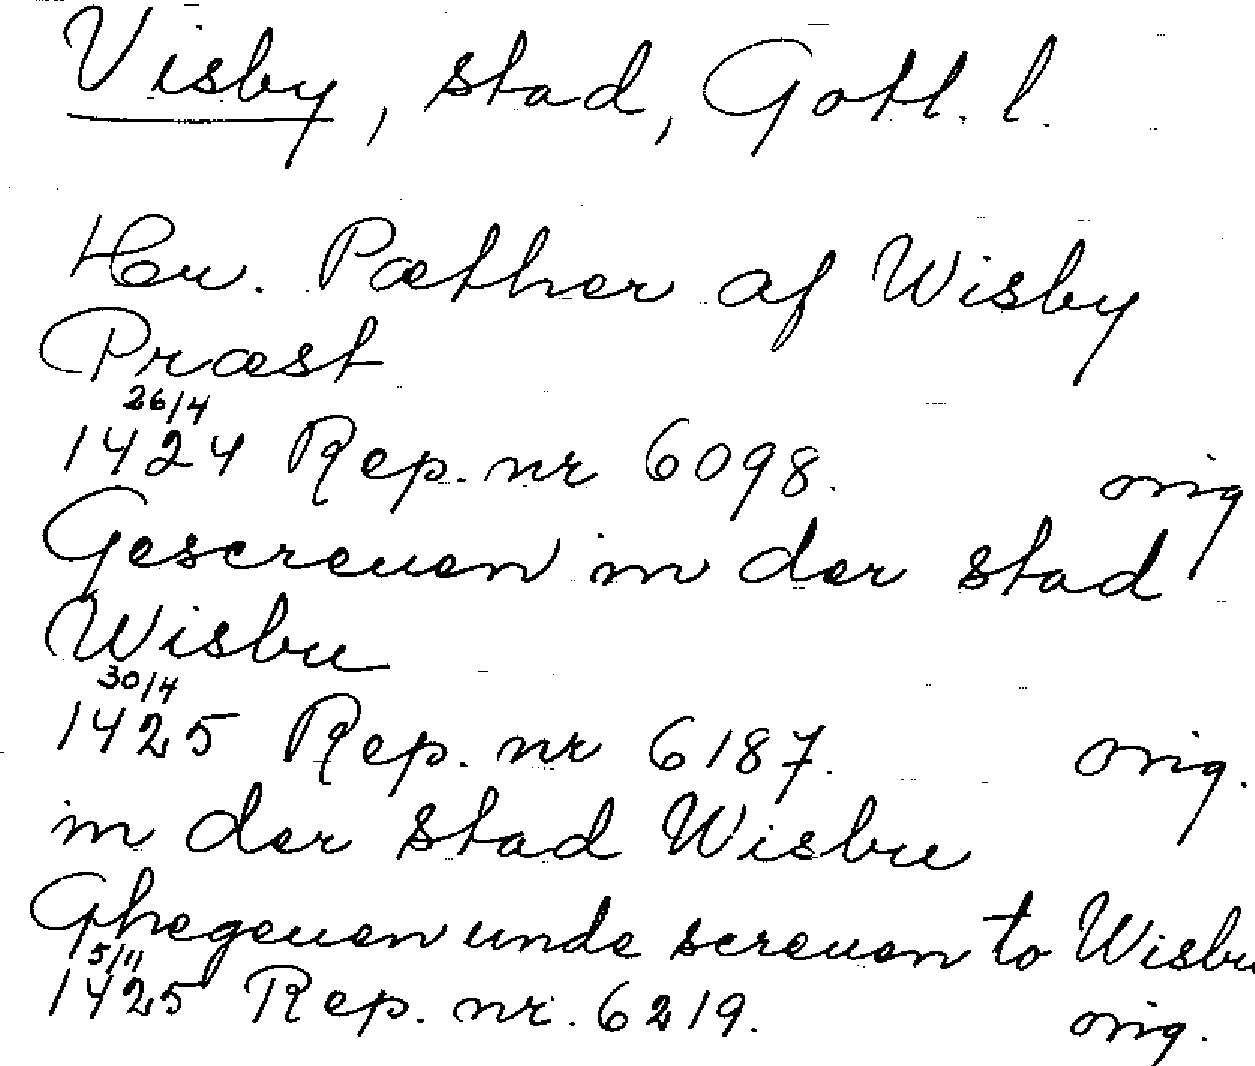 Visby, stad, Gotl. l.
Her. Pæther af Wisby
Præst
26/4
1424 Rep. nr 6098. orig
Gescreuen in der stad
Wisbu
30/4
1425 Rep. nr 6187. orig.
in der stad Wisbu
Ghegeuen unde screuen to Wisbu
5/11
1425 Rep. nr. 6219. orig.